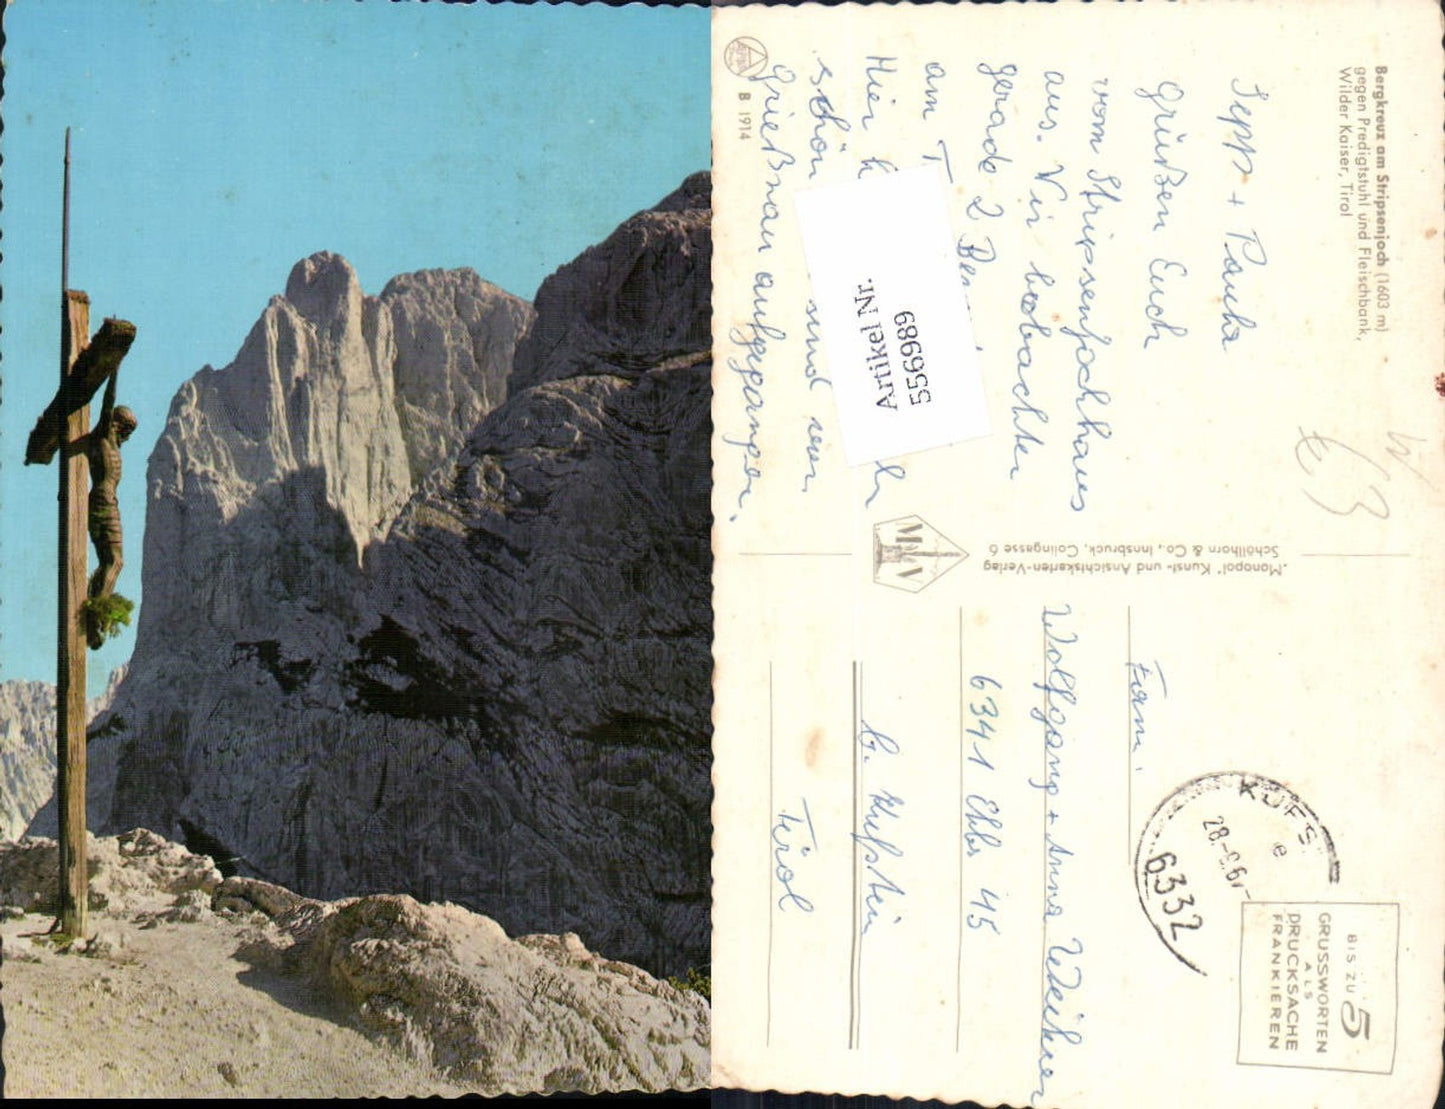 Bergkreuz am Stripsenjoch (1603 m)
gegen Predigtstuhl und Fleischbank,
Wilder Kaiser, Tirol
Sepp + Paula
Grüßen Euch
vom Stripsenjochhaus
aus. Wir beobachten
gerade 2 Ber
am T
Hier h
schön und wir
Grießnau aufgegangen.
B 1914
Artikel Nr.
556989
"Monopol" Kunst- und Ansichtskarten-Verlag
Schöllhorn & Co., Innsbruck, Colingasse 6
BIS ZU 5
GRUSSWORTEN
ALS
DRUCKSACHE
FRANKIEREN
KUFS
6332
Fam.
Wolfgang + Anna
6341 Ebbs 45
b. Kufstein
Tirol